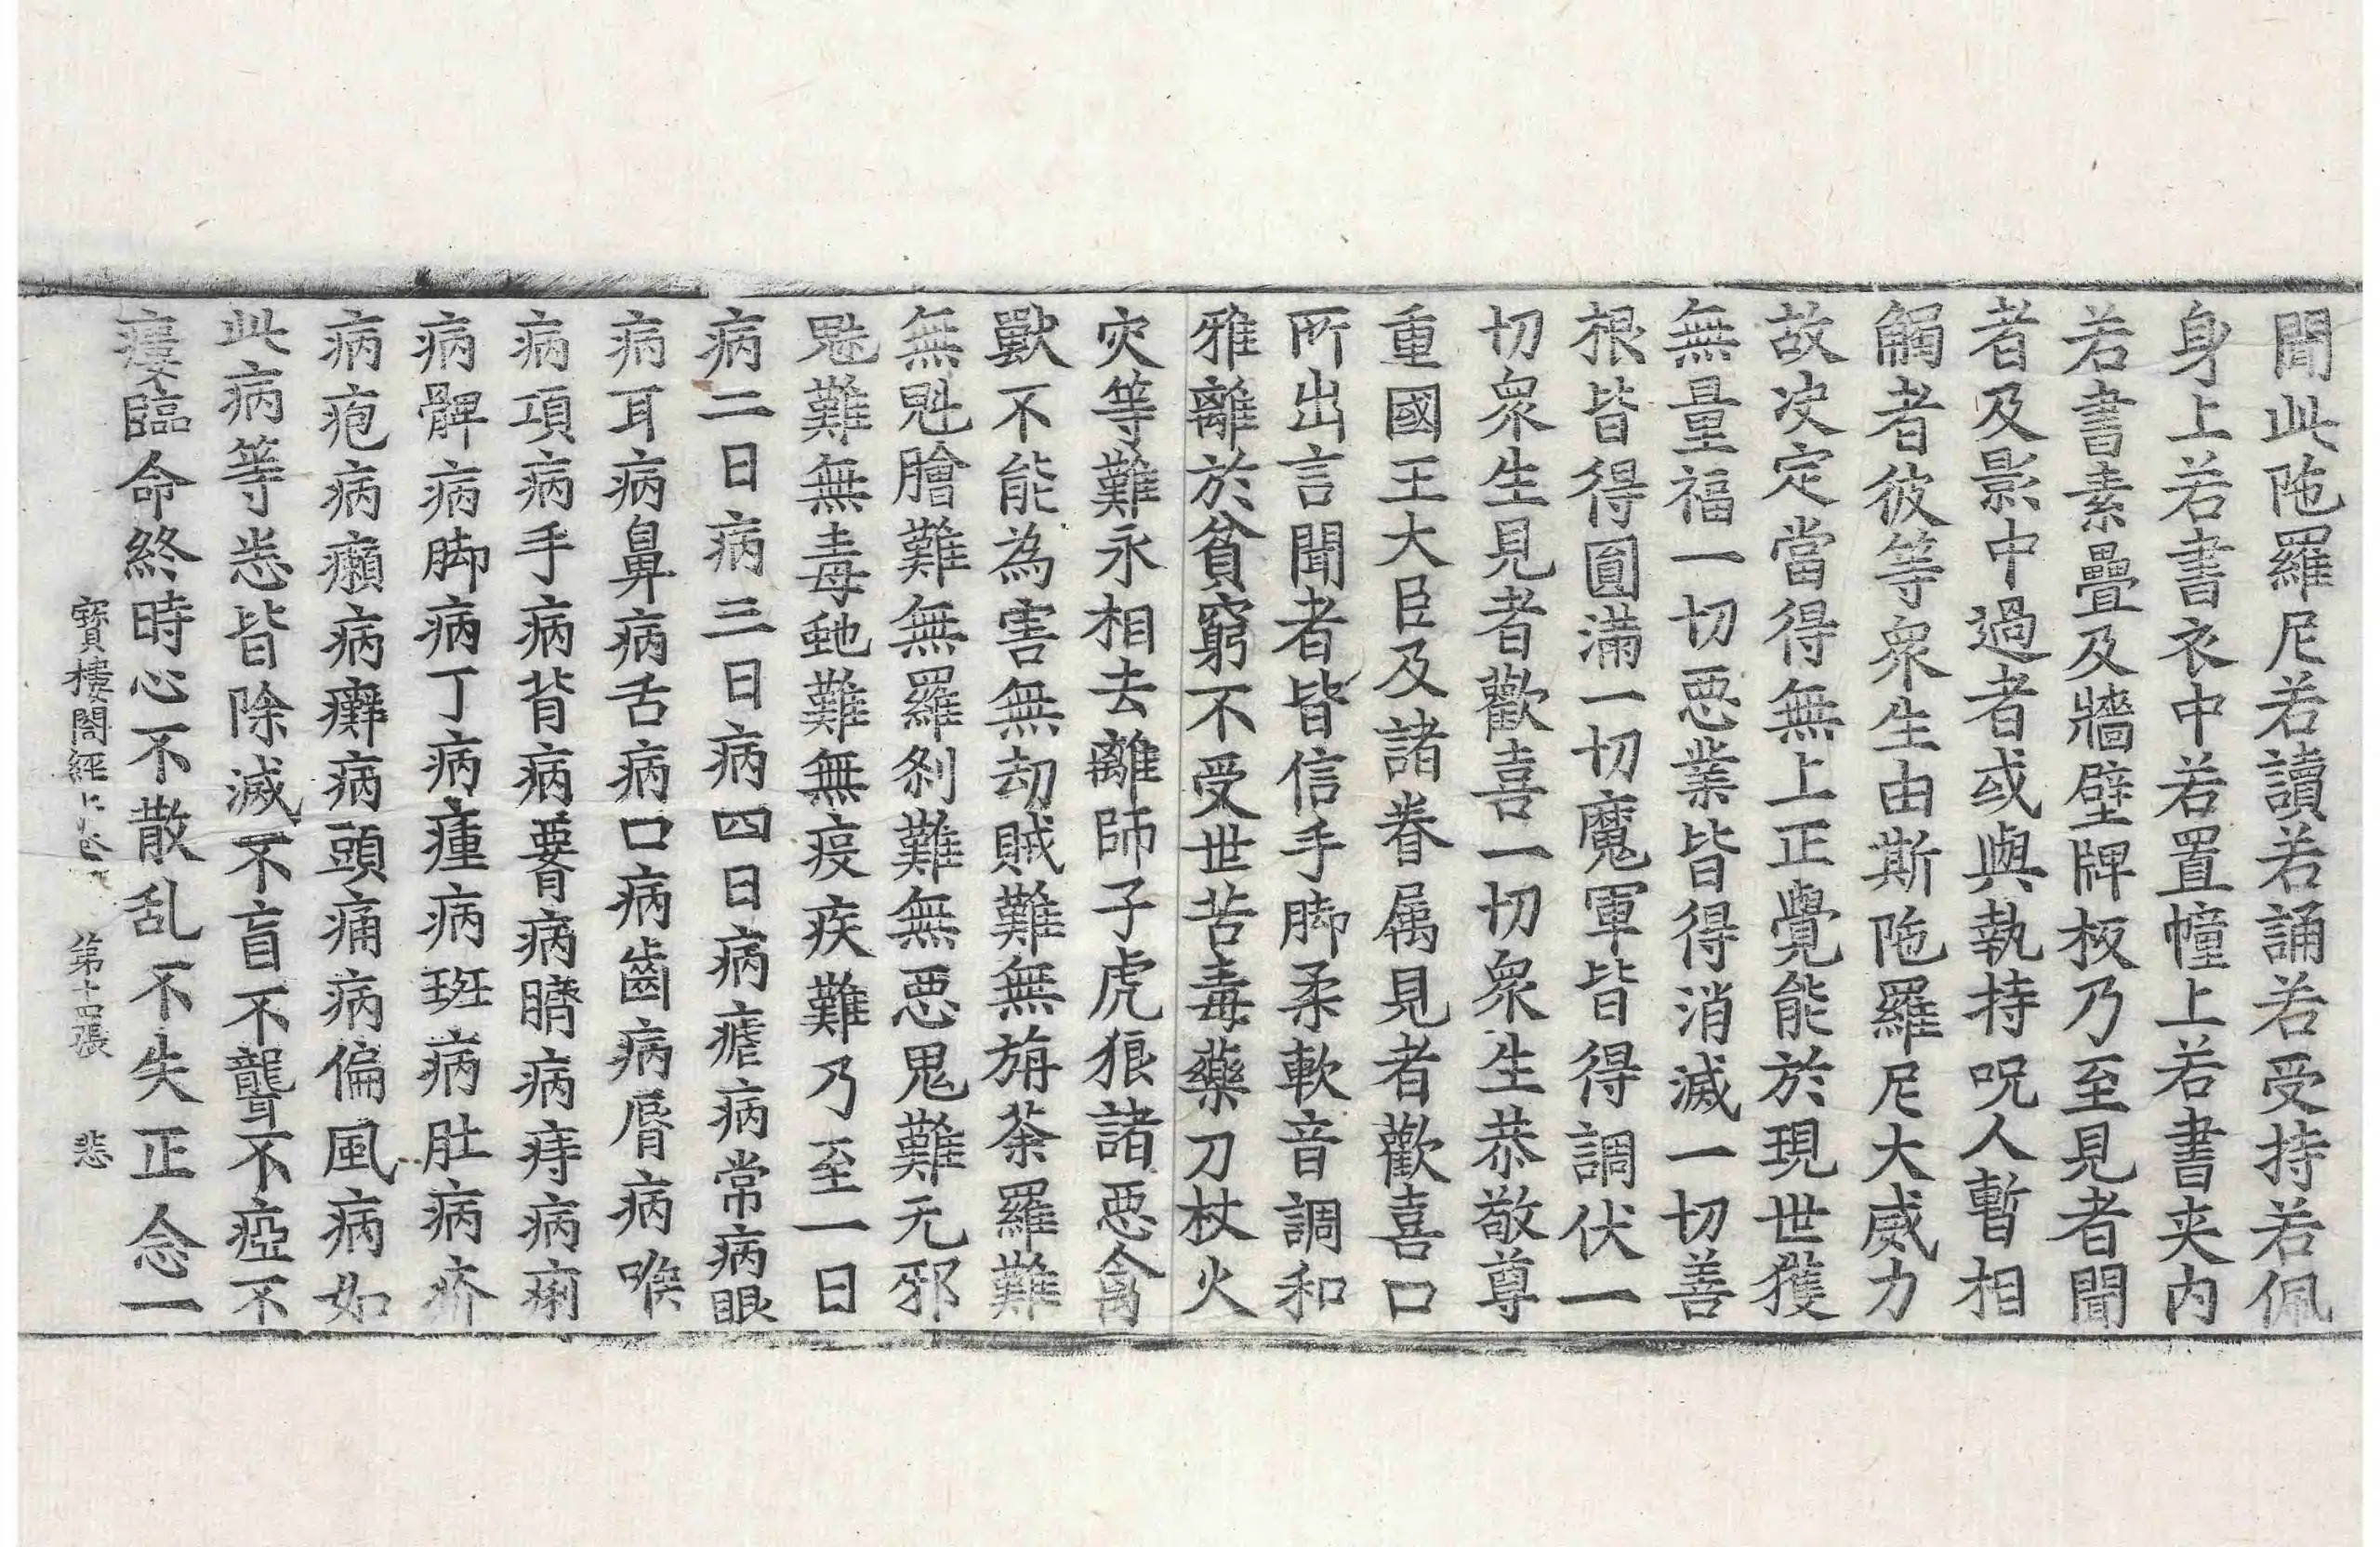 聞此陁羅尼若讀若誦若受持若佩
身上若書衣中若置幢上若書夹内
若書素疊及牆壁牌板乃至見者聞
者及影中過者或與執持呪人暫相
觸者彼等衆生由斯陁羅尼大威力
故决定當得無上正覺能於現世獲
無量福一切惡業皆得消滅一切善
根皆得圓滿一切魔軍皆得調伏一
切衆生見者歡喜一切衆生恭敬尊
重國王大臣及諸眷属見者歡喜口
所出言聞者皆信手脚柔軟音調和
雅離於貧窮不受世苦毒藥刀杖火
灾等難永相去離師子虎狼諸惡禽
獸不能為害無劫賊難無旃荼羅難
無魁膾難無羅剎難無惡鬼難无邪
魅難無毒虵難無疫疾難乃至一日
病二日病三日病四日病瘧病常病眼
病耳病鼻病舌病口病齒病脣病喉
病項病手病背病要病臍病痔病痢
病髀病脚病丁病瘇病斑病肚病疥
病疱病癩病癬病頭痛病偏風病如
此病等悉皆除滅不盲不聾不瘂不
瘻臨命終時心不散乱不失正念一
寶樓閣經上卷 第十四張 悲